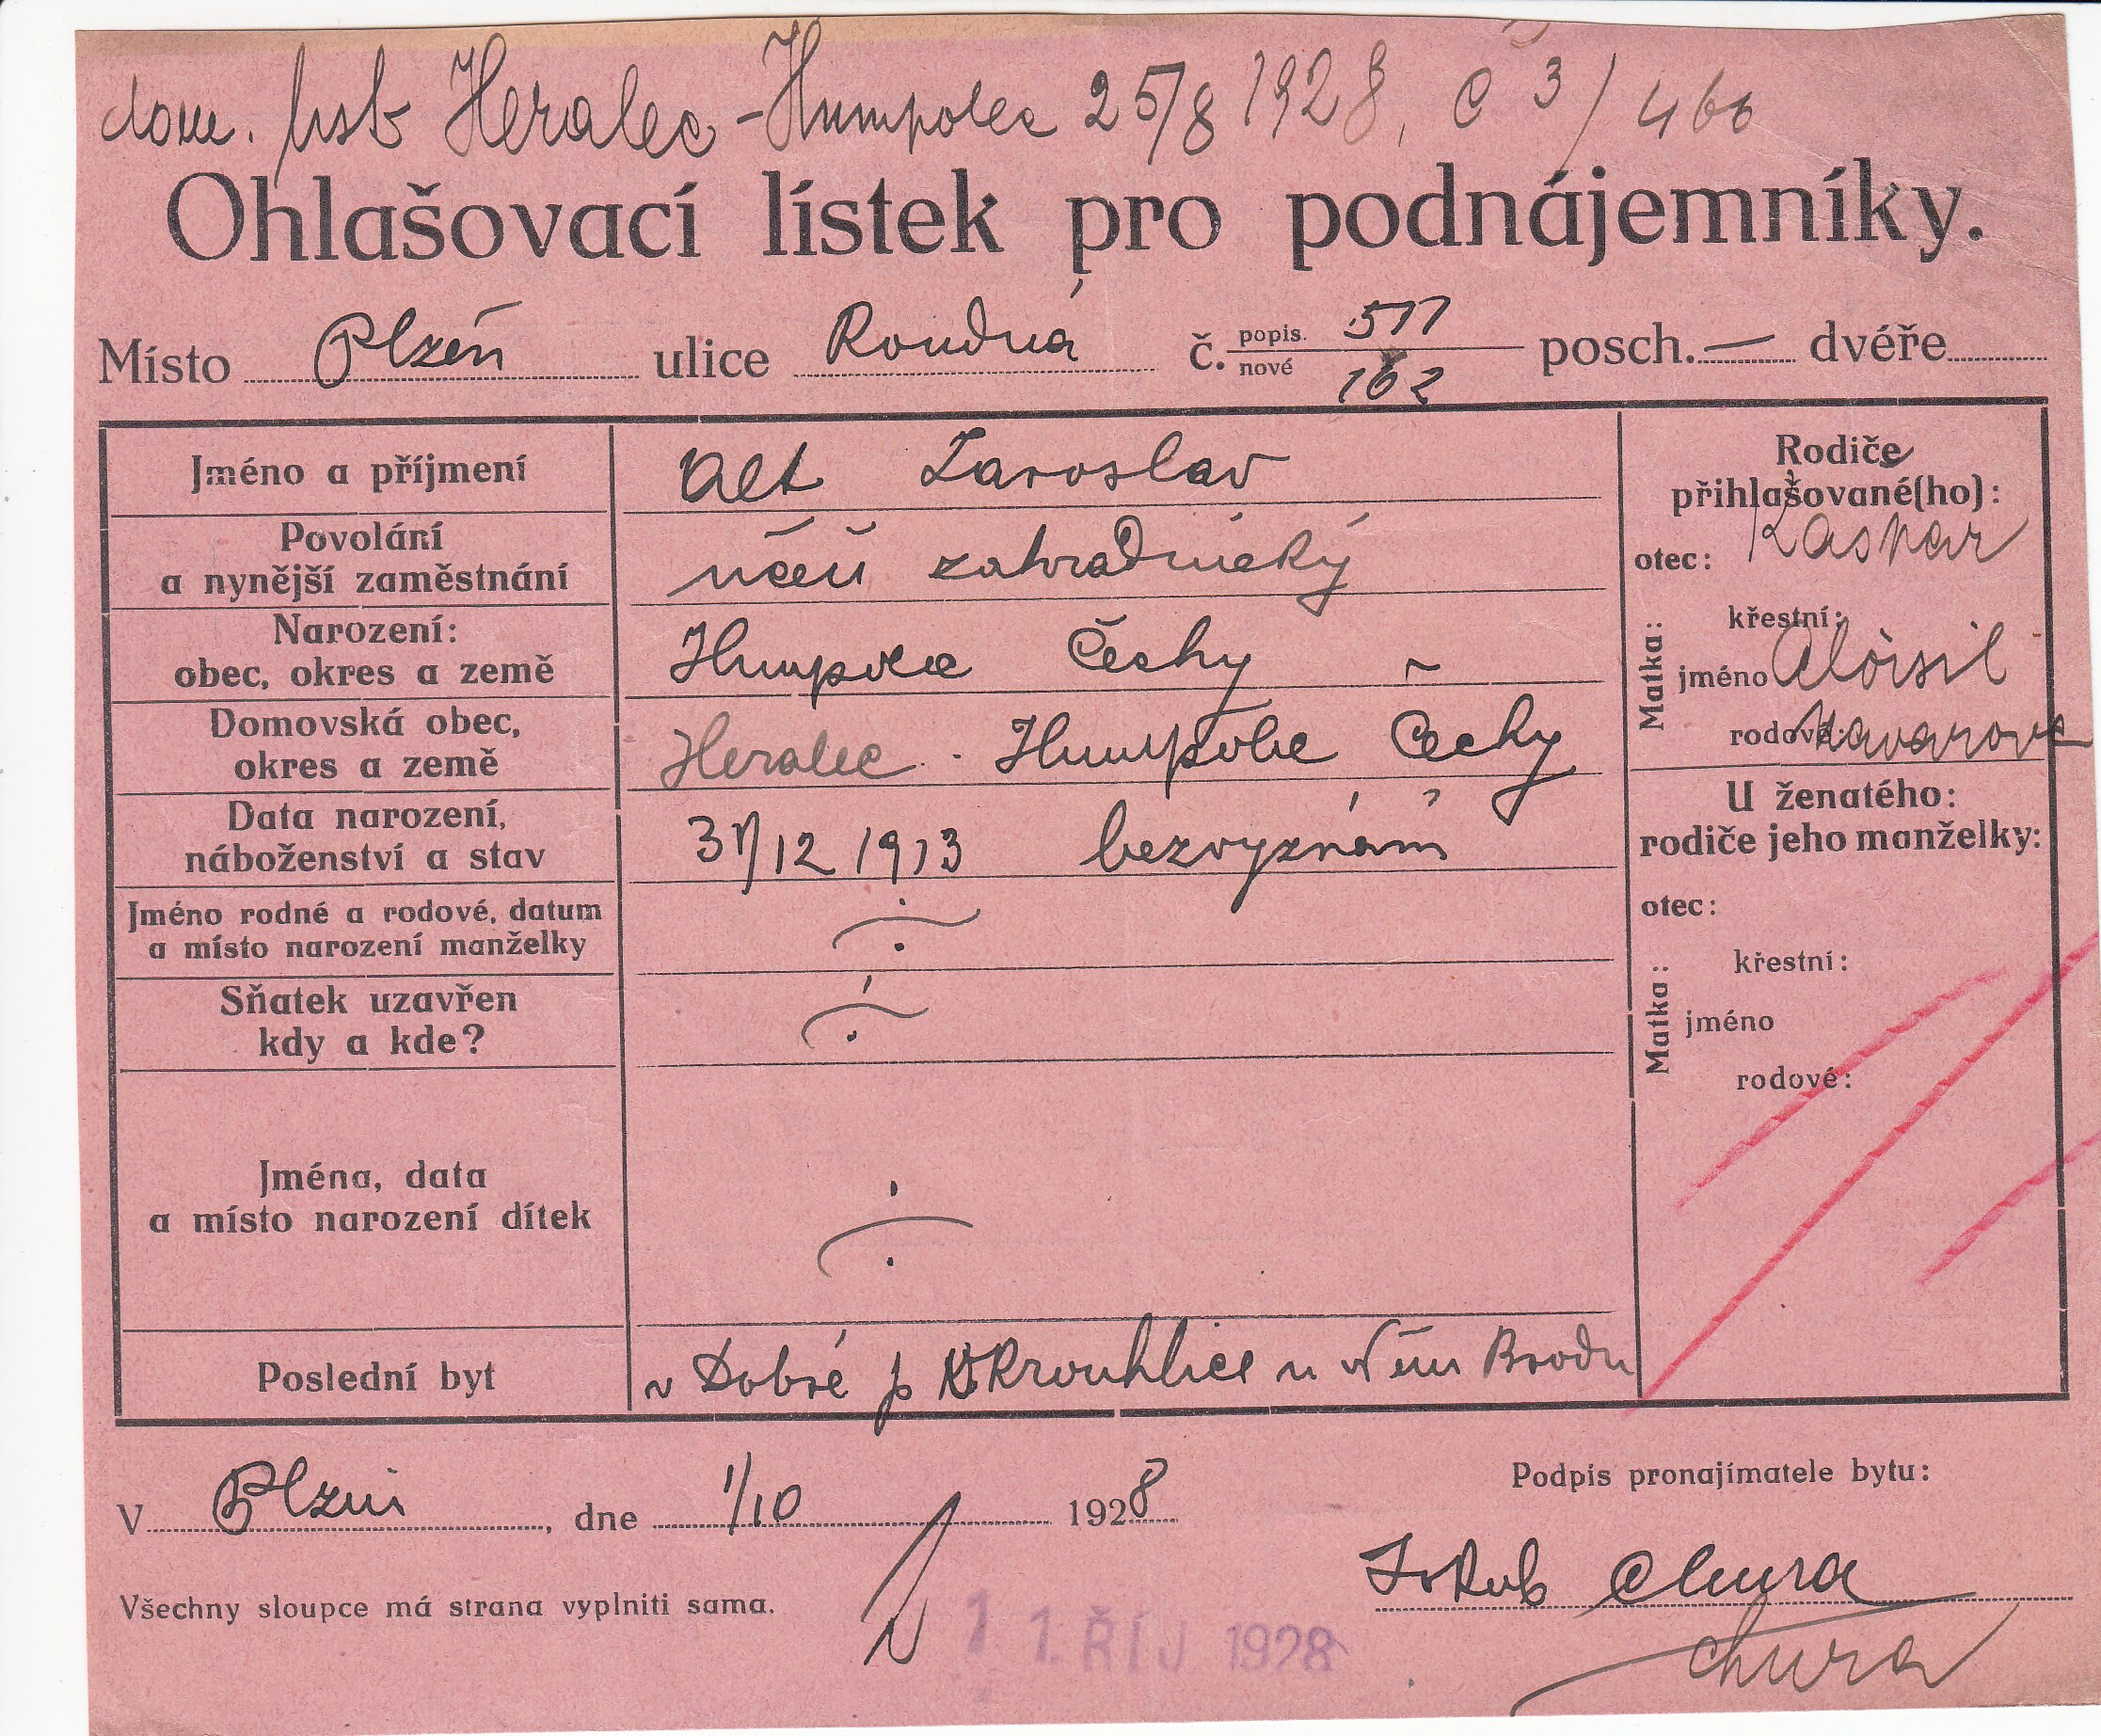 dom. list Heralec - Humpolec 25/8 1928, č 3/466
Ohlašovací lístek pro podnájemníky.
Místo Plzeň ulice Roudná č. popis. 511 nové 162 posch. — dvéře
Jméno a příjmení Alt Jaroslav
Povolání
a nynější zaměstnání učeň zahradnický
Narození:
obec, okres a země Humpolec Čechy ~
Domovská obec,
okres a země Heralec - Humpolec Čechy
Data narození,
náboženství a stav 31/12 1913 bezvyznání
Jméno rodné a rodové, datum
a místo narození manželky
Sňatek uzavřen
kdy a kde?
Jména, data
a místo narození dítek
Poslední byt v Dobré p Krouhlice u Něm Brodu
Rodiče
přihlašované(ho):
otec: Kašpar
Matka:
křestní:
jméno
rodové:
U ženatého:
rodiče jeho manželky:
otec:
Matka:
křestní:
jméno
rodové:
V Plzni, dne 1/10 1928
Podpis pronajímatele bytu:
Jakub Chura
Všechny sloupce má strana vyplniti sama.
Chura
1 1. ŘÍJ 1928